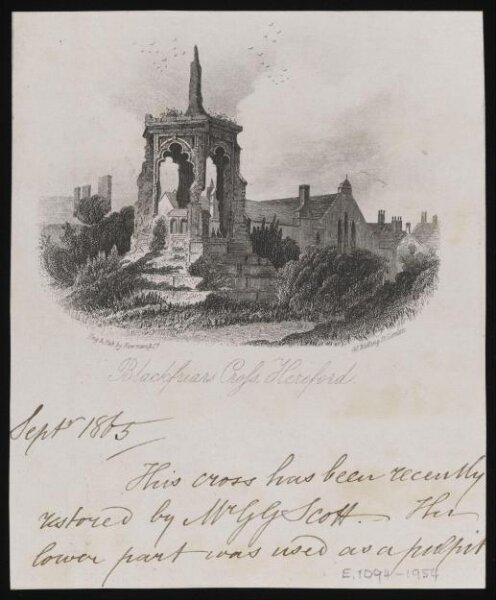 Eng. & Pub. by Newman & Co.
48 Watling St. London
Blackfriars Cross, Hereford.
Septr 1865
This cross has been recently
restored by Mr G G Scott. The
lower part was used as a pulpit
E.1094-1954